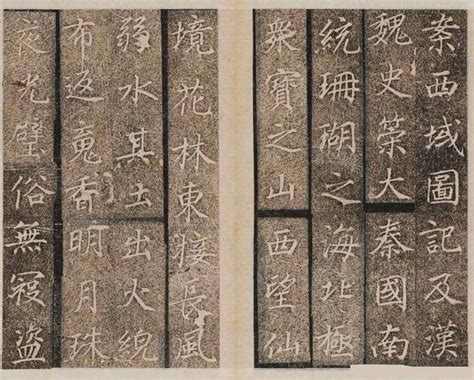 案西域圖記及漢
魏史策大秦國南
統珊瑚之海北極
衆寶之山西望仙
境花林東接長風
弱水其土出火綄
布返魂香明月珠
夜光璧俗無寇盜